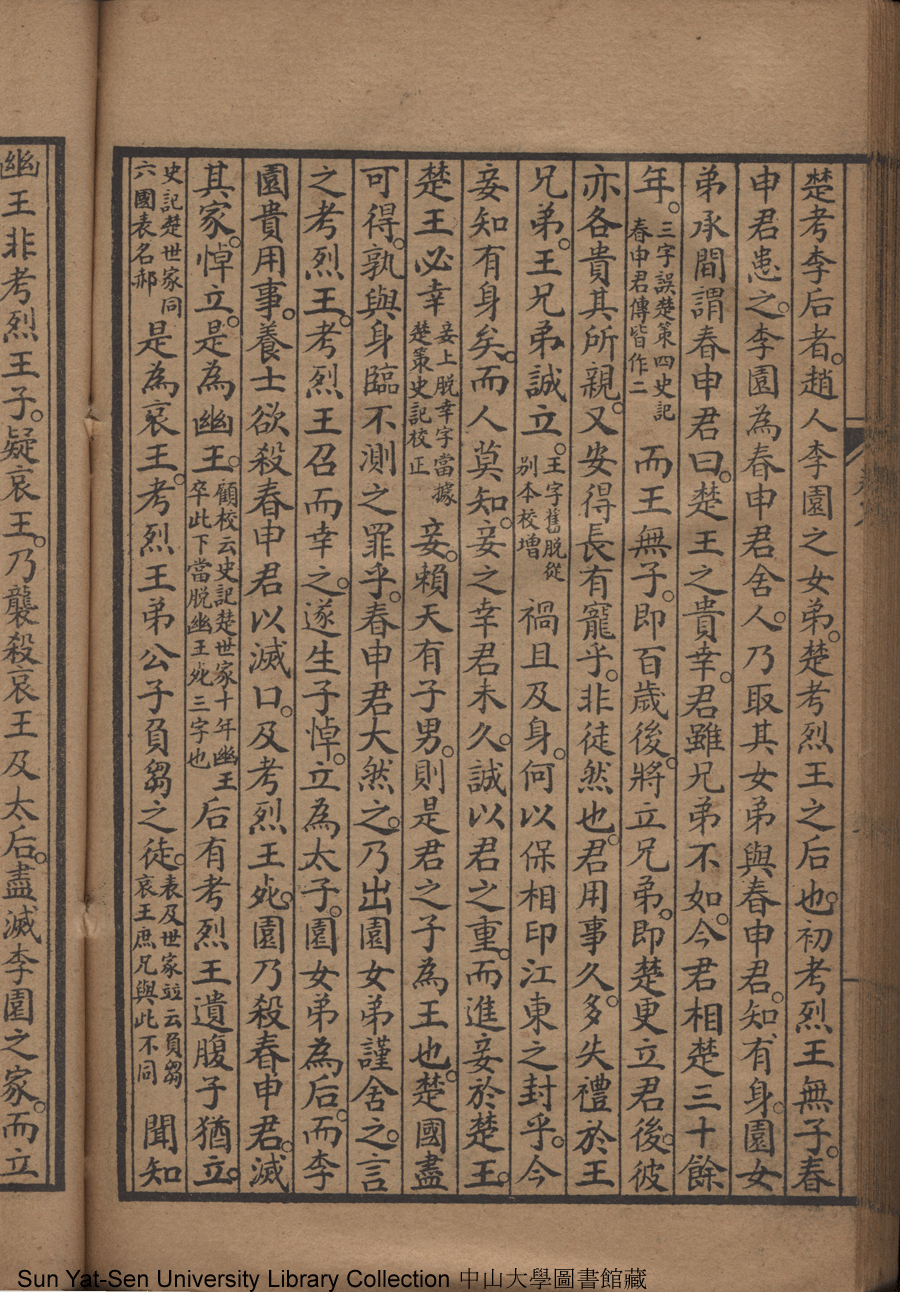 楚考李后者。趙人李園之女弟。楚考烈王之后也。初考烈王無子。春
申君患之。李園為春申君舍人。乃取其女弟與春申君。知有身。園女
弟承間謂春申君曰。楚王之貴幸。君雖兄弟不如。今君相楚三十餘
年。三字誤楚策四史記春申君傳皆作二而王無子。即百歲後。將立兄弟。即楚更立君後。彼
亦各貴其所親。又安得長有寵乎。非徒然也。君用事久。多失禮於王
兄弟。王兄弟誠立。王字舊脱從别本校增禍且及身。何以保相印江東之封乎。今
妾知有身矣。而人莫知。妾之幸君未久。誠以君之重。而進妾於楚王。
楚王必幸妾上脱幸字當據楚策史記校正妾。賴天有子男。則是君之子為王也。楚國盡
可得。孰與身臨不測之罪乎。春申君大然之。乃出園女弟謹舍之。言
之考烈王。考烈王召而幸之。遂生子悼。立為太子。園女弟為后。而李
園貴用事。養士欲殺春申君以滅口。及考烈王死。園乃殺春申君。滅
其家。悼立。是為幽王。顧校云史記楚世家十年幽王卒此下當脱幽王死三字也后有考烈王遺腹子猶立。
史記楚世家同六國表名郝是為哀王。考烈王弟公子負芻之徒。表及世家竝云負芻哀王庶兄與此不同聞知
幽王非考烈王子。疑哀王。乃襲殺哀王及太后。盡滅李園之家。而立
Sun Yat-Sen University Library Collection 中山大學圖書館藏